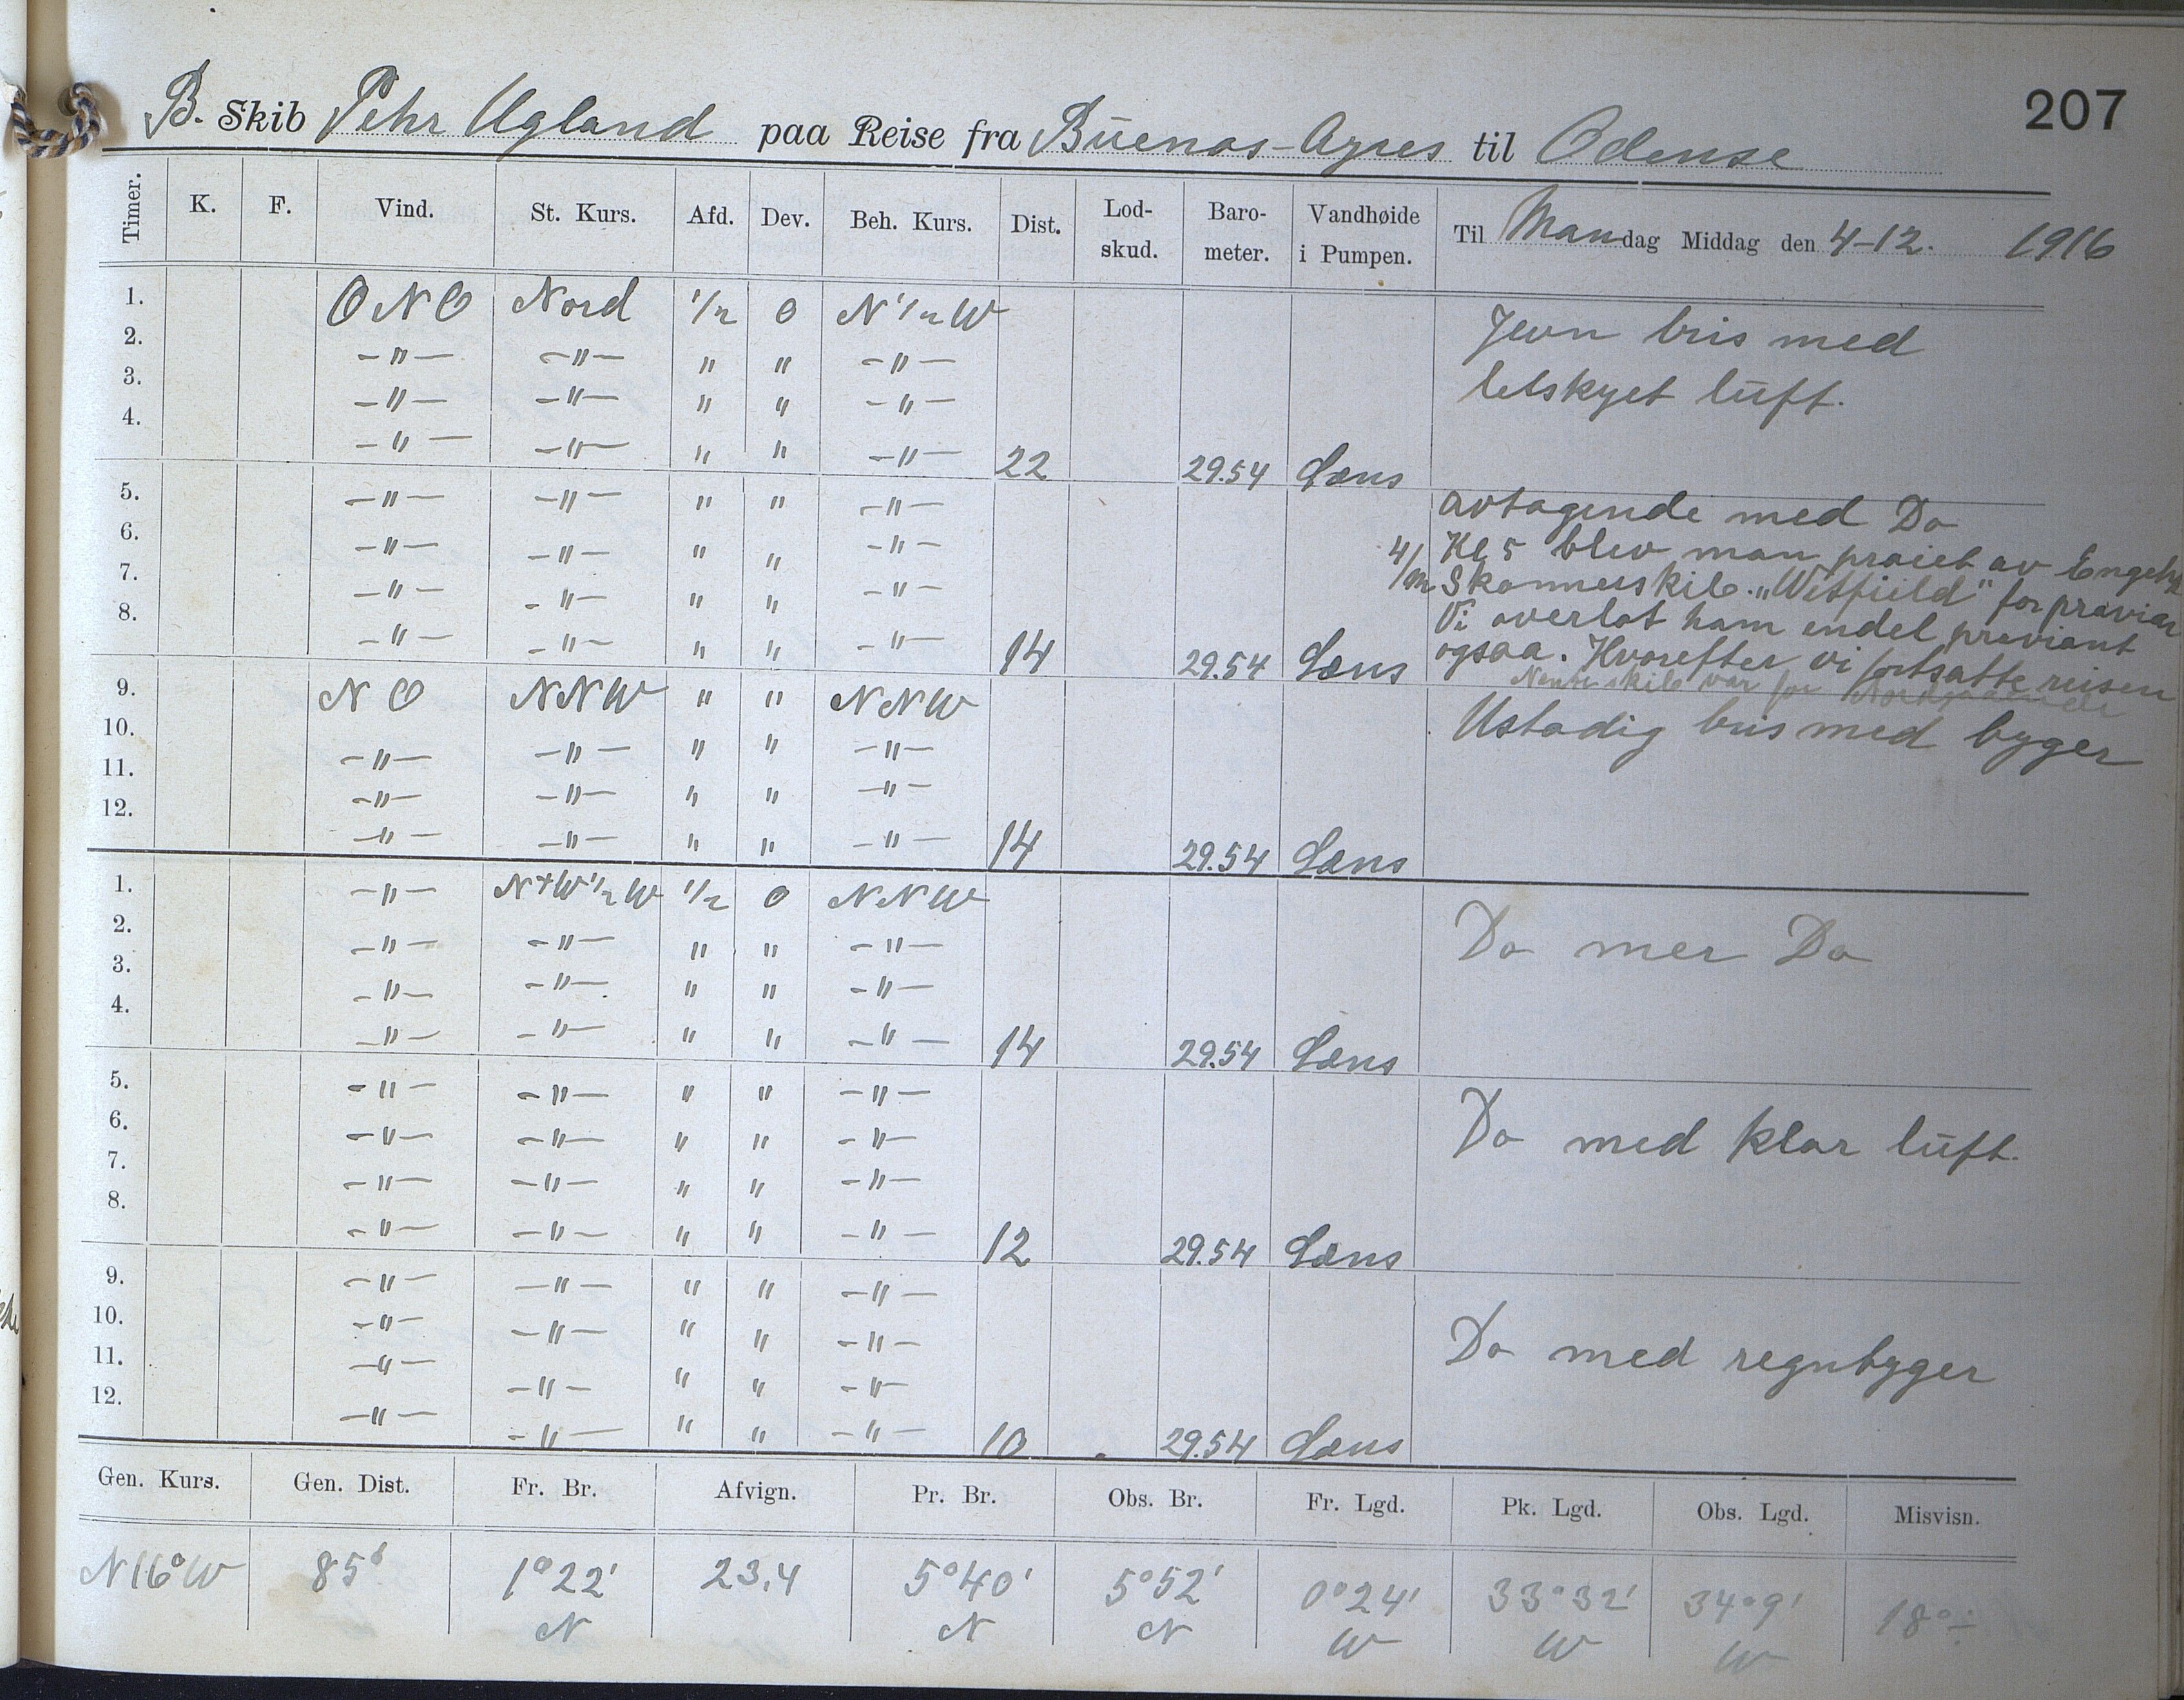 207
B. Skib Pehr Ugland paa Reise fra Buenos-Ayres til Odense
Timer. K. F. Vind. St. Kurs. Afd. Dev. Beh. Kurs. Dist. Lod-skud. Baro-meter. Vandhøide i Pumpen. Til Mandag Middag den 4-12. 1916
1. ONO Nord 1/2 0 N 1/2 W Jevn bris med
2. -"- -"- " " -"-
3. -"- -"- " " -"- letskyet luft.
4. -"- -"- " " -"- 22 29.54 Læns
5. -"- -"- " " -"- avtagende med Do
6. -"- -"- " " -"- 4/12 Kl 5 blev man praiet av Engelsk
7. -"- -"- " " -"- Skonnerskib. „Witfield" for provian
Vi overlot ham endel proviant
8. -"- -"- " " -"- 14 29.54 Læns ogsaa. Hvorefter vi fortsatte reisen
Nevnte skib var for
9. NO NNW " " NNW Ustadig bris med byger
10. -"- -"- " " -"-
11. -"- -"- " " -"-
12. -"- -"- " " -"- 14 29.54 Læns
1. -"- N+W 1/2 W 1/2 0 NNW
2. -"- -"- " " -"- Do mer Do
3. -"- -"- " " -"-
4. -"- -"- " " -"- 14 29.54 Læns
5. -"- -"- " " -"-
6. -"- -"- " " -"- Do med klar luft.
7. -"- -"- " " -"-
8. -"- -"- " " -"- 12 29.54 Læns
9. -"- -"- " " -"-
10. -"- -"- " " -"- Do med regnbyger
11. -"- -"- " " -"-
12. -"- -"- " " -"- 10 29.54 Læns
Gen. Kurs. Gen. Dist. Fr. Br. Afvign. Pr. Br. Obs. Br. Fr. Lgd. Pk. Lgd. Obs. Lgd. Misvisn.
N16°W 85' 1°22' 23,4 5°40' 5°52' 0°24' 33°32' 34°9' 18° ÷
N N N W W W